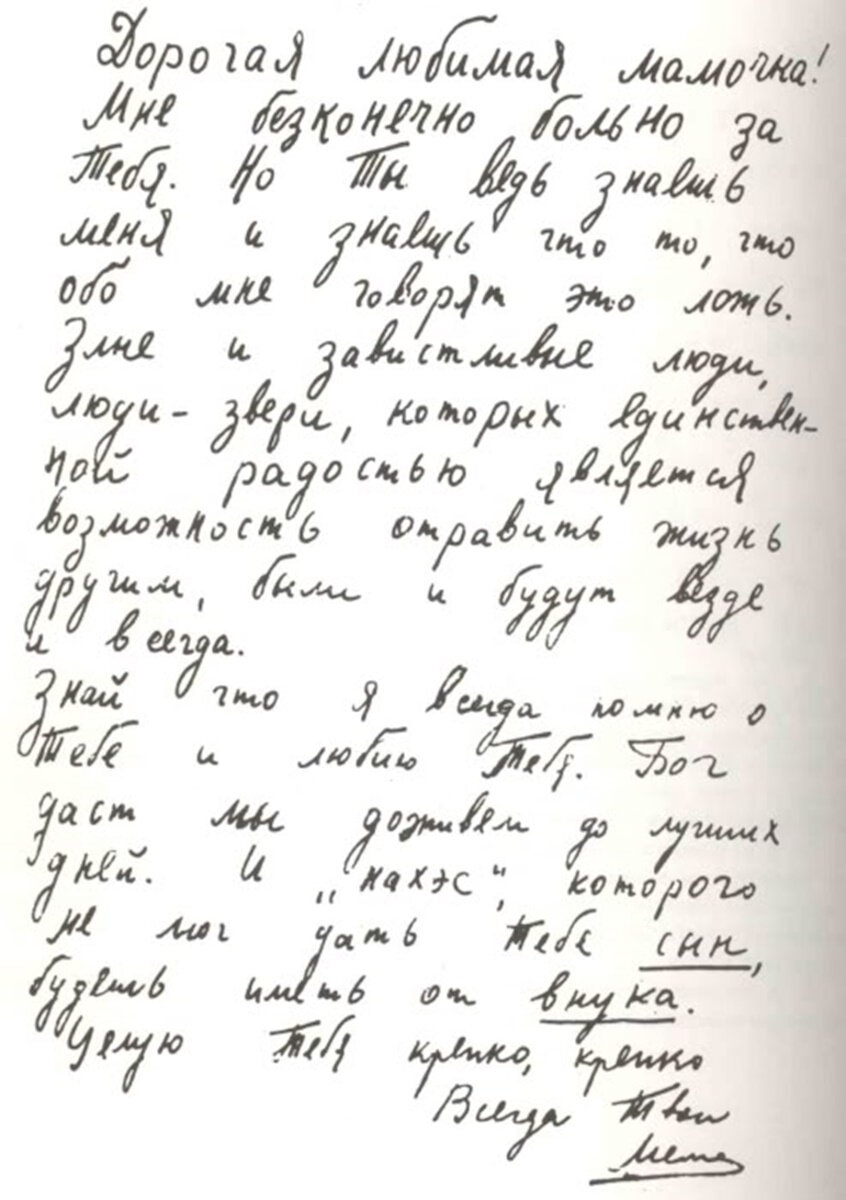 Дорогая любимая мамочка!
Мне безконечно больно за
Тебя. Но Ты ведь знаешь
меня и знаешь что то, что
обо мне говорят это ложь.
Злые и завистливые люди,
люди-звери, которых единствен-
ной радостью является
возможность отравить жизнь
другим, были и будут везде
и всегда.
Знай что я всегда помню о
Тебе и люблю Тебя. Бог
даст мы доживем до лучших
дней. И „нахэс", которого
не мог дать Тебе сын,
будешь иметь от внука.
Целую Тебя крепко, крепко
Всегда Твой